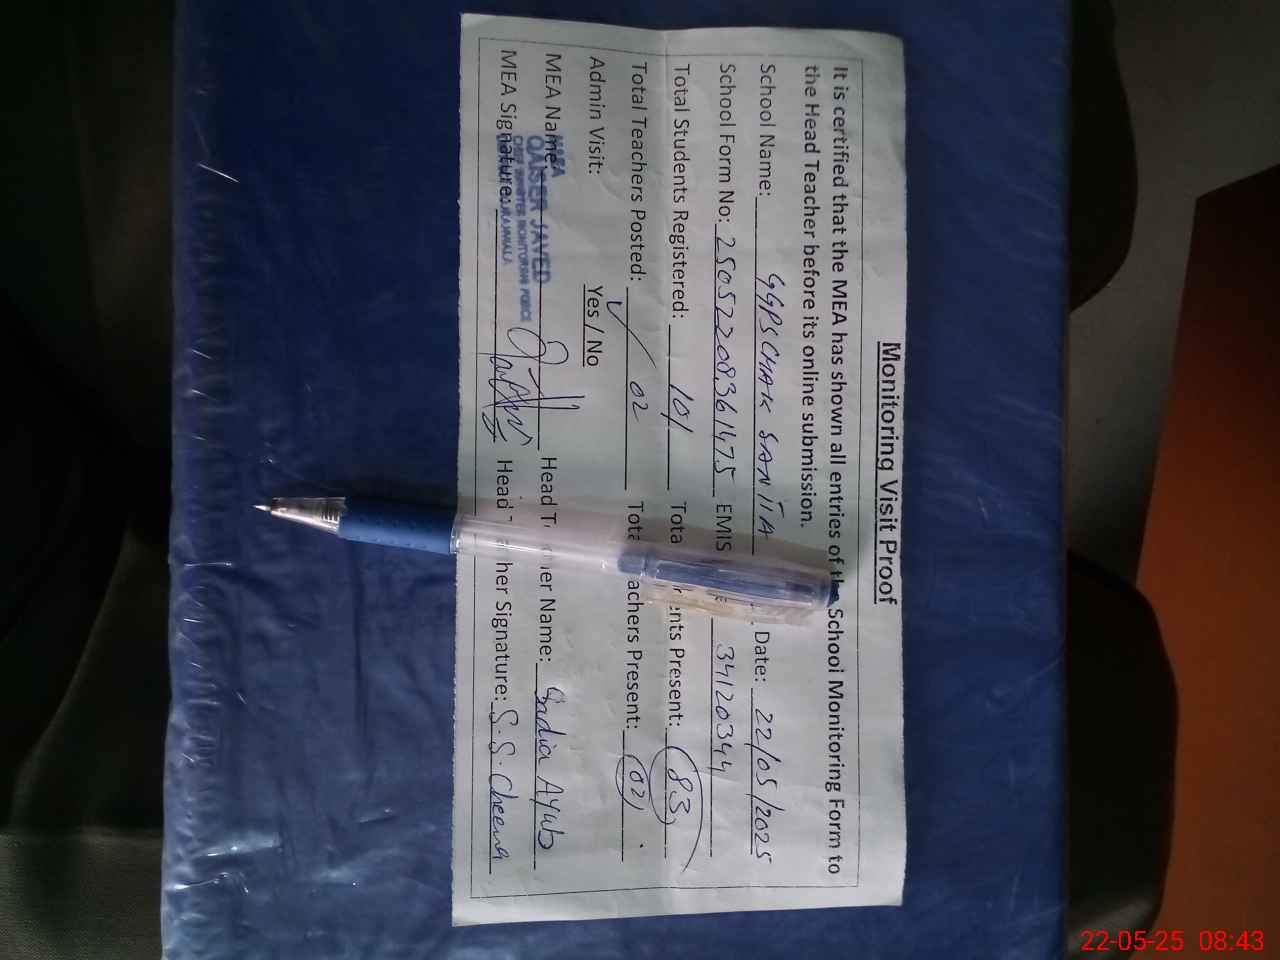 Monitoring Visit Proof
It is certified that the MEA has shown all entries of the School Monitoring Form to
the Head Teacher before its online submission.
School Name: GGPS CHAK SANTIA Date: 22/05/2025
School Form No: 25052208361475 EMIS 34120344
Total Students Registered: 101 Tota ents Present: 83
Total Teachers Posted: 02 Tota achers Present: 02
Admin Visit: Yes / No
MEA Name: Head T her Name: Sadia Ayub
MEA Signature: Head her Signature: S.S. Cheema
M&EA
QAISER JAVED
CHIEF MINISTER MONITORING FORCE
22-05-25 08:43